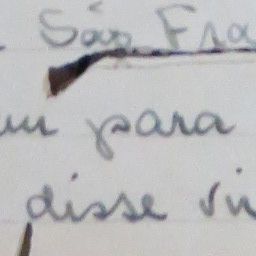 São Fra
para
disse